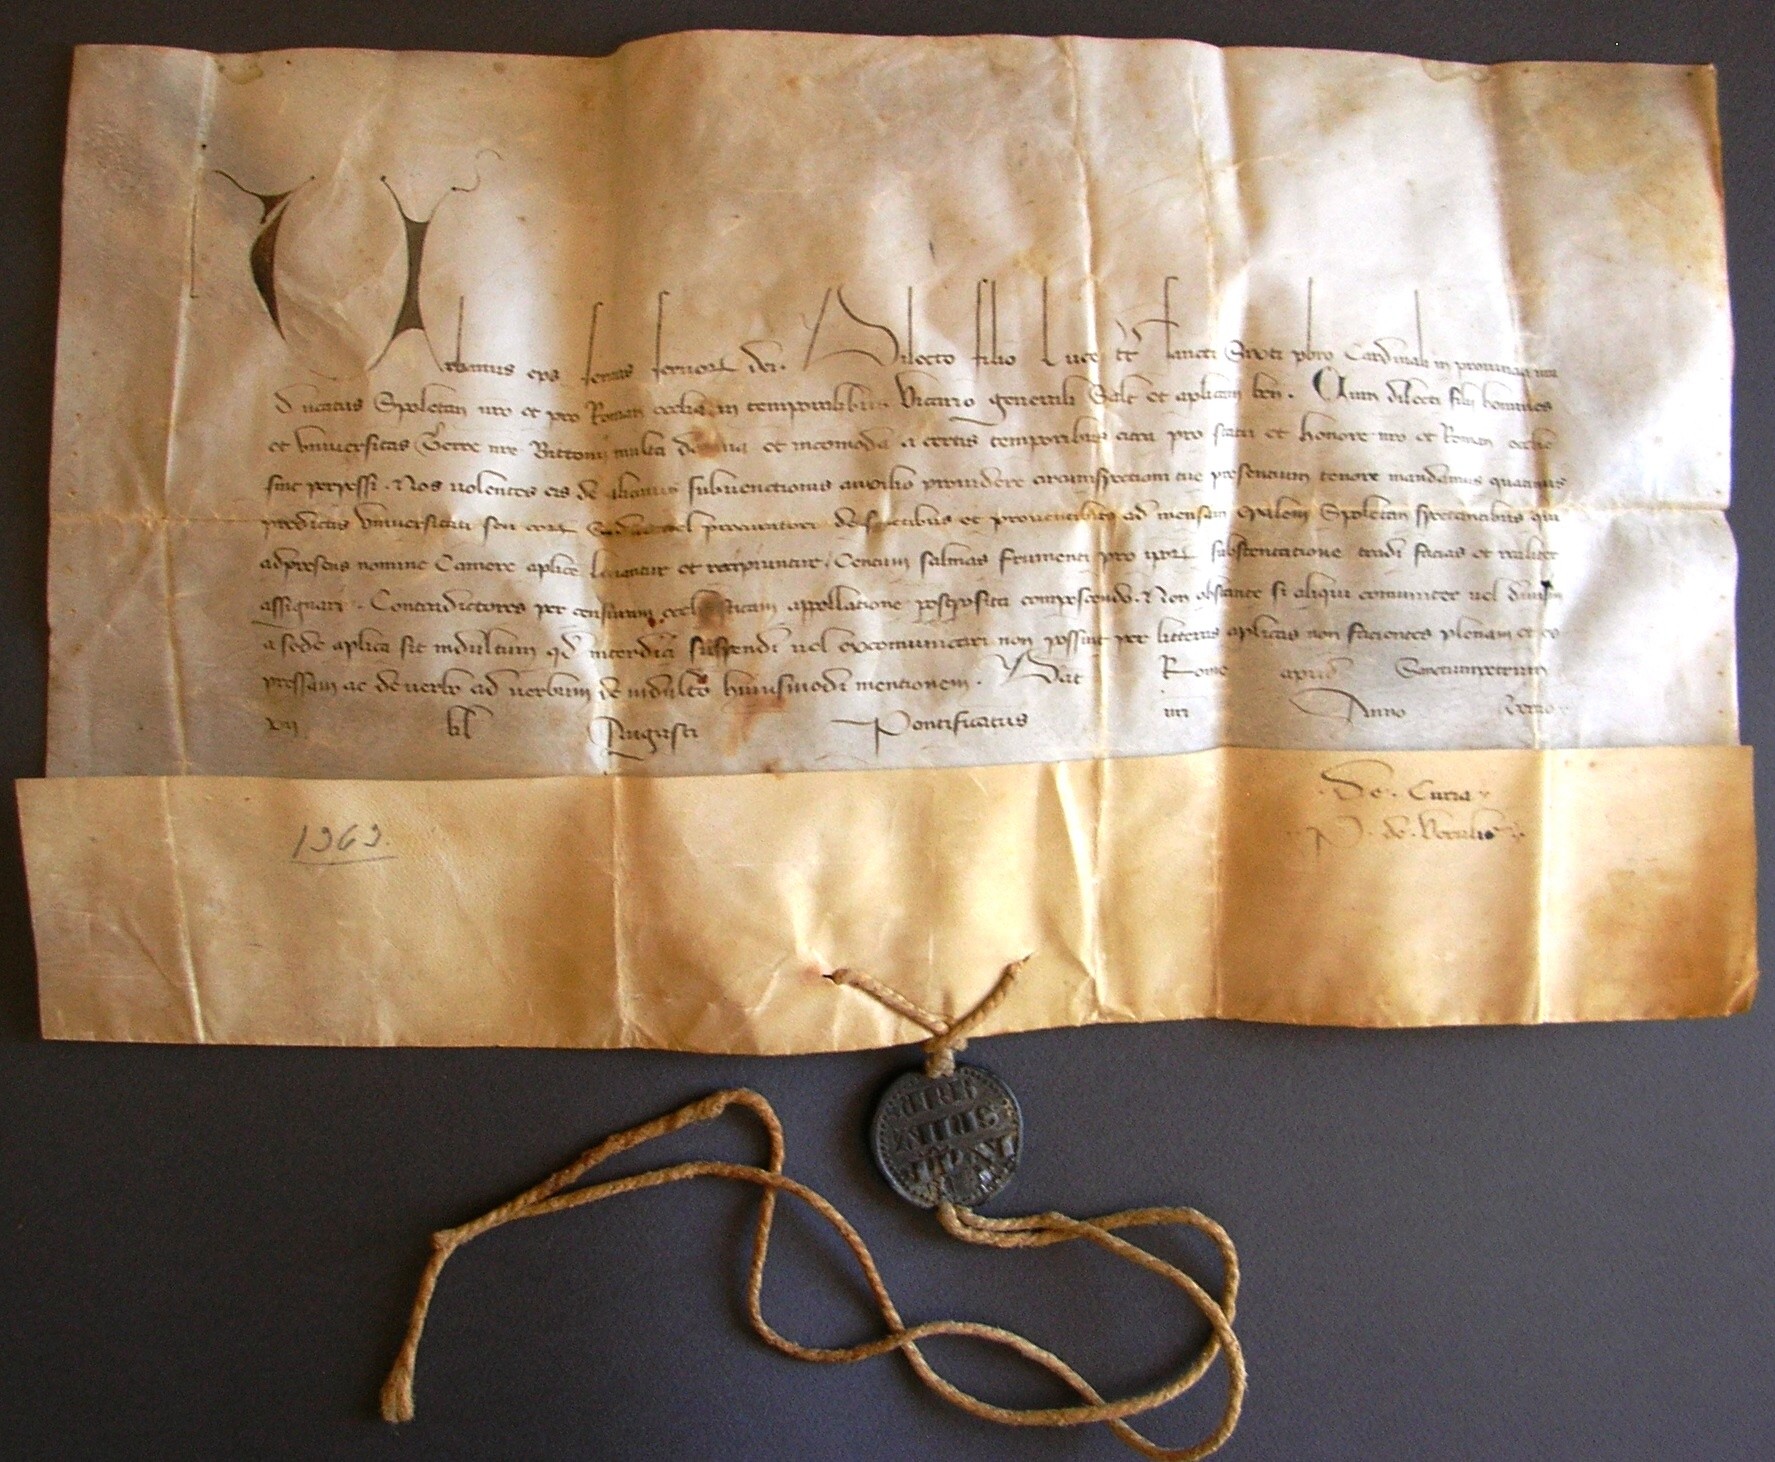 Urbanus eps servus servor dei. Dilecto filio Luce tt sancti Sixti pbro Cardinali in provincia nri
ducatus Spoletan nro et pro Roman ecclia in temporalibus Vicario generali Salt et aplicam ben. Cum dilecti filii homines
et Universitas Terre nre Bittonii multa et incomoda a certis temporibus citra pro statu et honore nro et Roman ecclie
sint perpessi. Nos volentes eis de alicuius subventionis auxilio providere circumspectioni tue presentium tenore mandamus quatinus
predictis Universitati seu eor vel procuratori de fructibus et proventibus ad mensam epalem Spoletan spectantibus qui
adpresens nomine Camere aplice levantur et recipiuntur, Centum salmas frumenti pro ipor substentatione tradi facias et realiter
assignari. Contradictores per censuram ecclesiasticam appellatione postposita compescendo. Non obstante si aliquibus comuniter vel divisim
a sede aplica sit indultum qd interdici suspendi vel excomunicari non possint per litteras aplicas non facientes plenam et ex
pressam ac de verbo ad verbum de indulto huiusmodi mentionem. Dat Rome apud Sanctumpetrum
vii kl Augusti Pontificatus nri Anno
De Curia
P. de
1363.
URBA
NUS